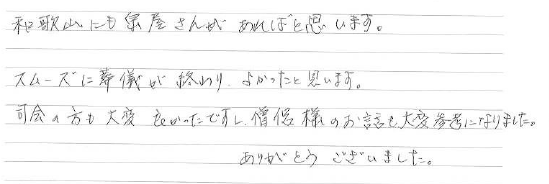 和歌山にも泉屋さんがあればと思います。
スムーズに葬儀が終わり、よかったと思います。
司会の方も大変良かったですし、僧侶様のお話も大変参考になりました。
ありがとうございました。